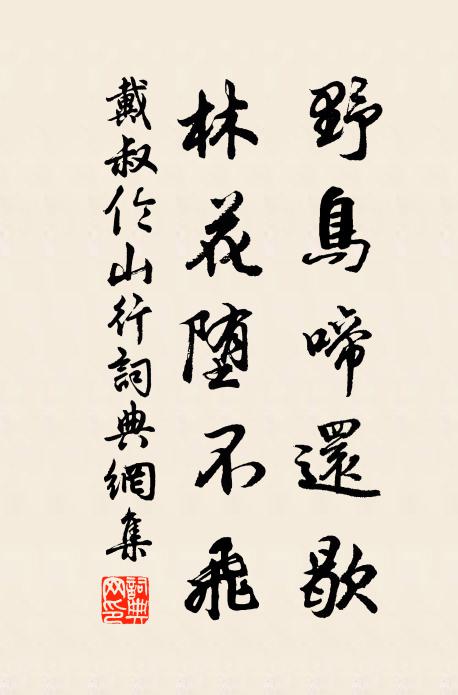 野鳥啼還歇
林花堕不飛
戴叔伦山行詞典網集
詞典网印